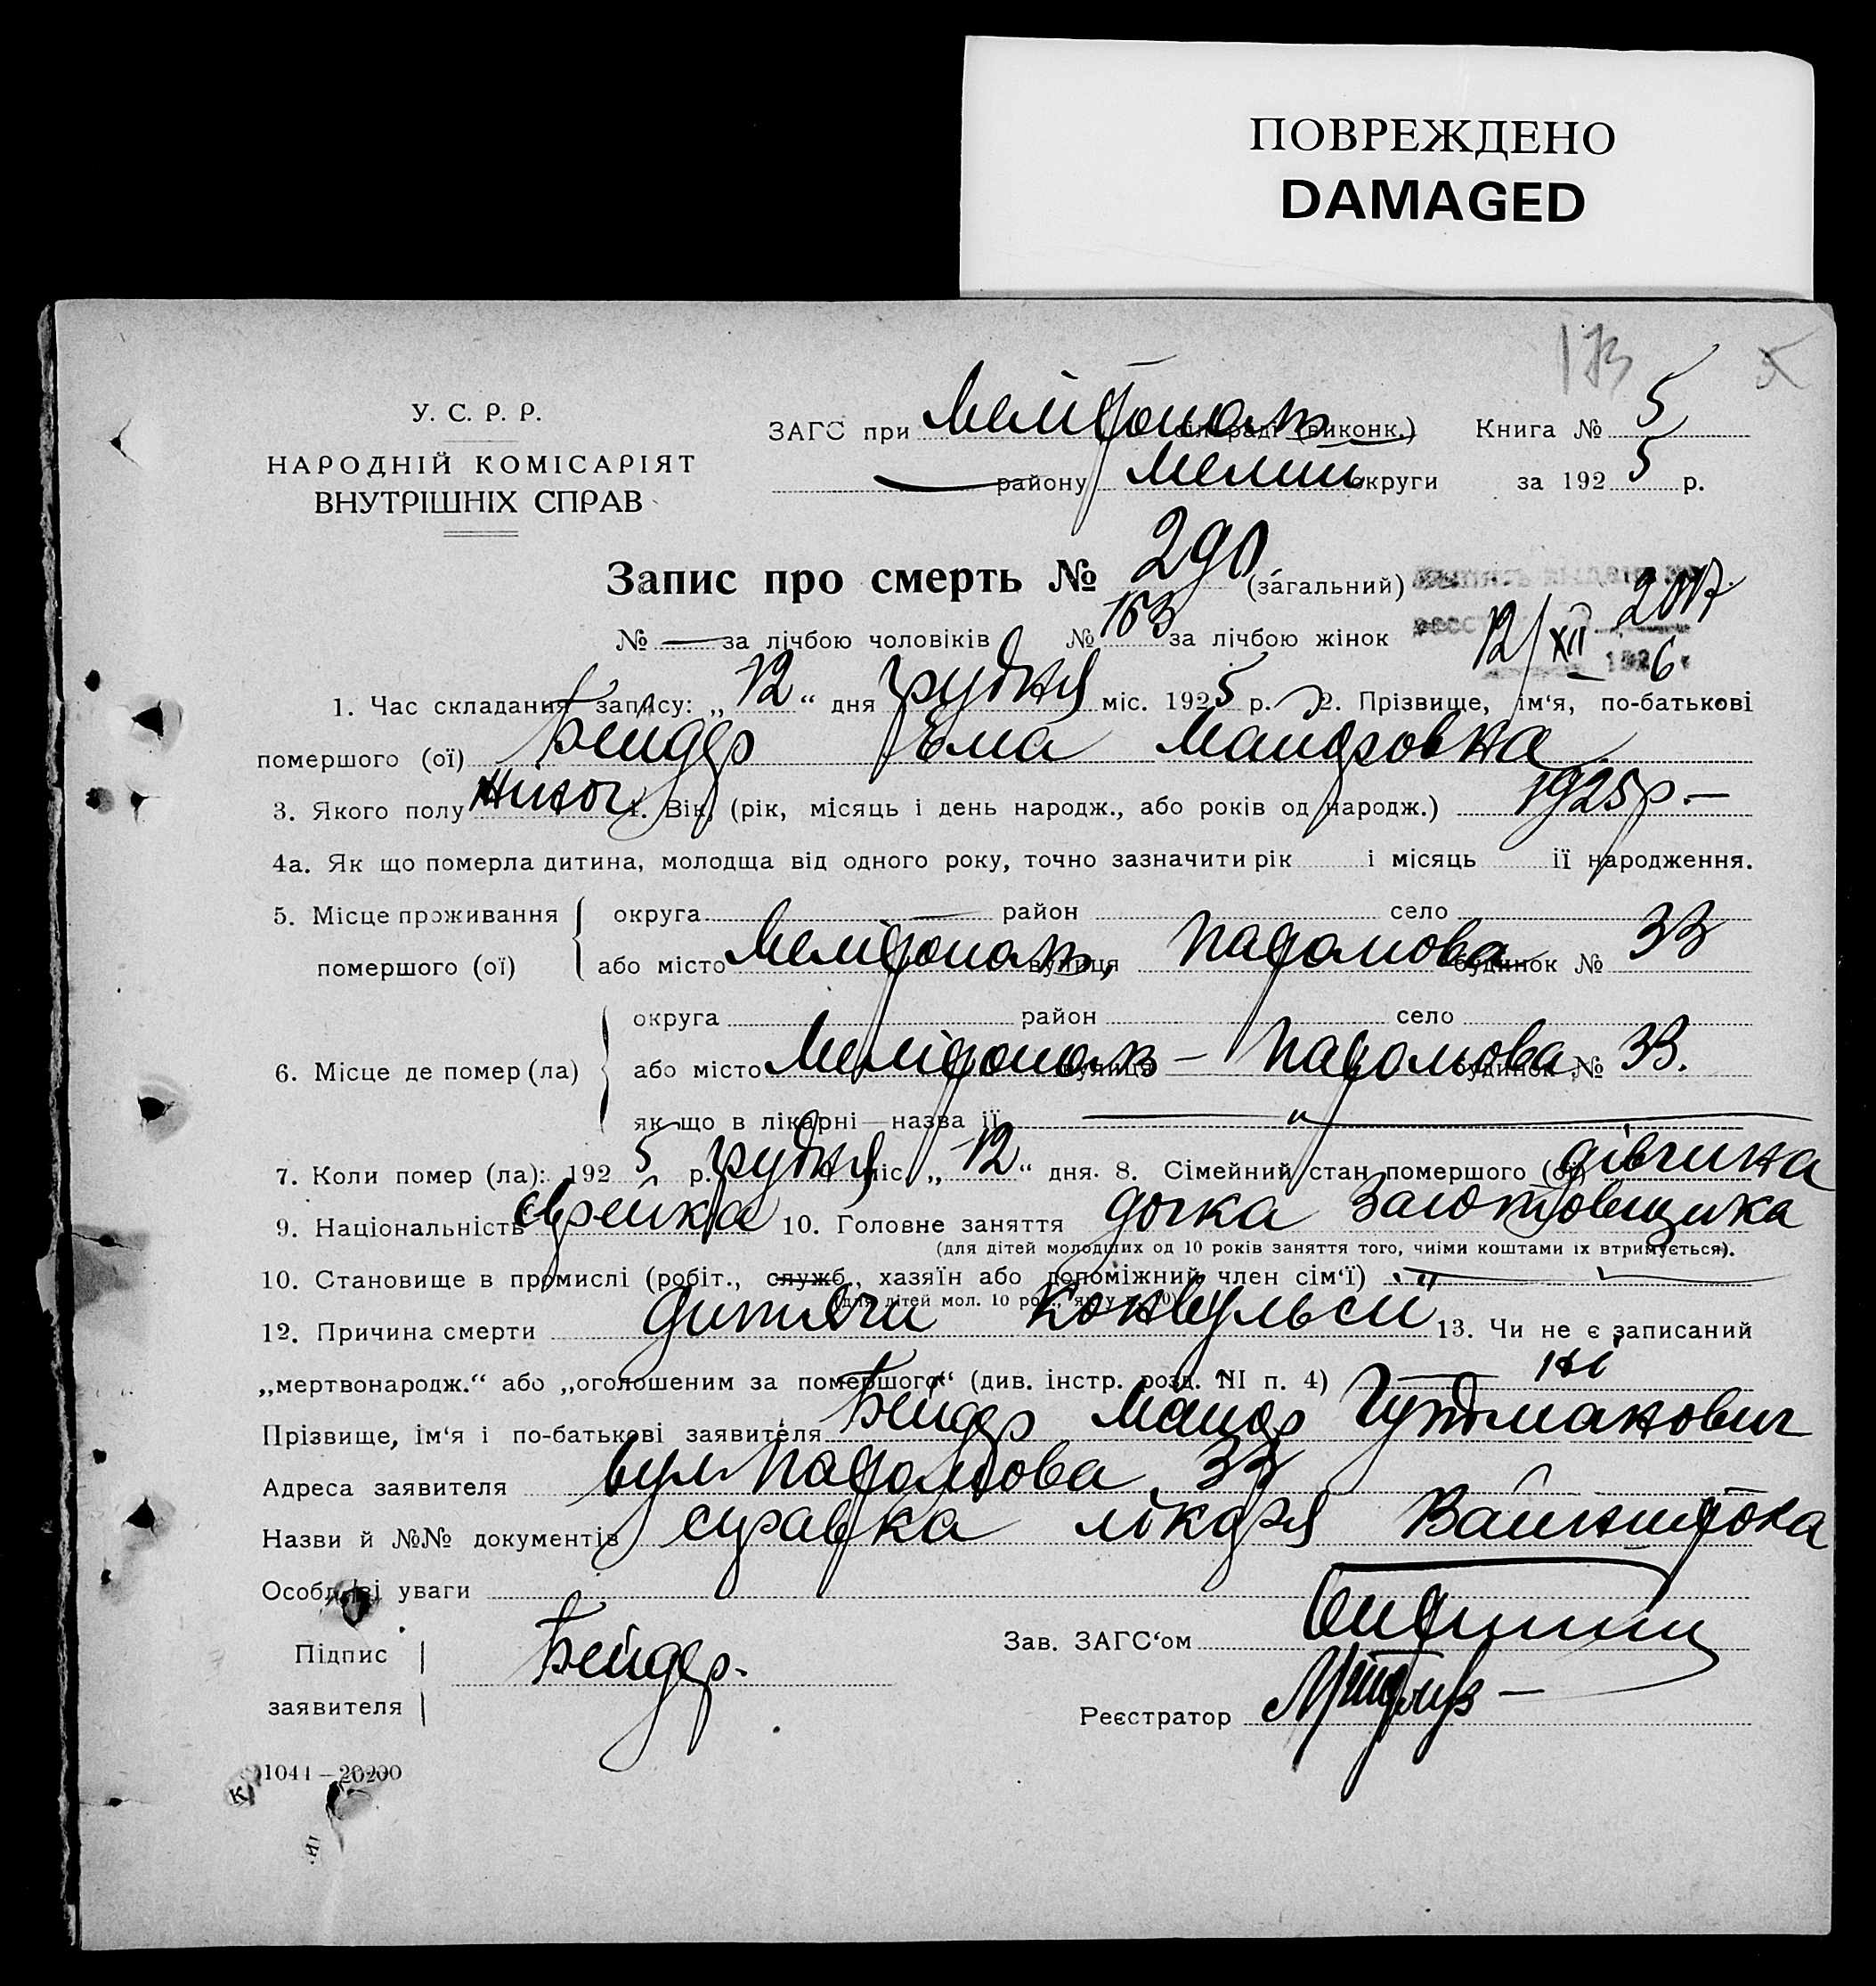 ПОВРЕЖДЕНО
DAMAGED
173 5
У. С. Р. Р.
НАРОДНІЙ КОМІСАРІЯТ
ВНУТРІШНІХ СПРАВ
ЗАГС при Мелітополь сільраді (виконк.) Книга № 5
району Меліт округи за 1925 р.
Запис про смерть № 290 (загальний)
№ — за лічбою чоловіків № 153 за лічбою жінок
12/XII 1926
1. Час складання запису: „12“ дня грудня міс. 1925 р. 2. Прізвище, ім‘я, по-батькові
помершого (ої) Бейдер Ема Майоровна
3. Якого полу жіноч 4. Вік, (рік, місяць і день народж., або років од народж.) 1925 р. —
4а. Як що померла дитина, молодща від одного року, точно зазначити рік і місяць її народження.
5. Місце проживання помершого (ої) округа — район село
або місто Мелітополь, вулиця будинок № 33
6. Місце де помер (ла) округа район село
або місто Мелітополь — вулиця будинок № 33.
як що в лікарні—назва її "
7. Коли помер (ла): 1925 р. грудня міс. „12“ дня. 8. Сімейний стан помершого (ої) дівчина
9. Національність єврейка 10. Головне заняття дочка Заготовщика
(для дітей молодших од 10 років заняття того, чиїми коштами їх втримується).
10. Становище в промислі (робіт., служб., хазяїн або допоміжний член сім‘ї) "
(для дітей мол. 10 рок., як у п. 10)
12. Причина смерти дитячи конвульсії 13. Чи не є записаний
„мертвонародж.“ або „оголошеним за помершого“ (див. інстр. розд. III п. 4) — ні
Прізвище, ім‘я і по-батькові заявителя Бейдер Майор Гутманович
Адреса заявителя вул 33
Назви й №№ документів справка лікаря Вайнштока
Особливі уваги
Підпис заявителя Бейдер. Зав. ЗАГС‘ом
Реєстратор
1041—20200